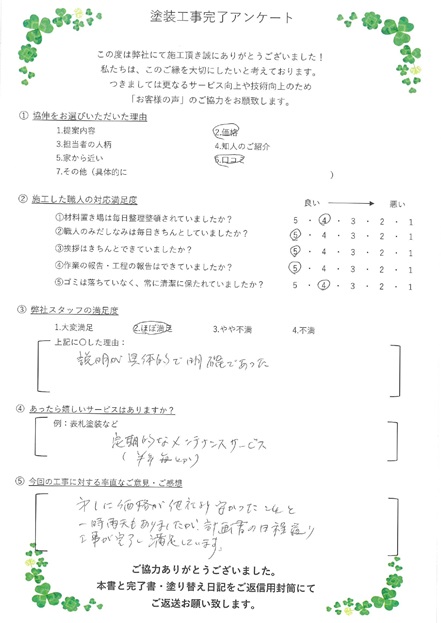 塗装工事完了アンケート
この度は弊社にて施工頂き誠にありがとうございました！
私たちは、このご縁を大切にしたいと考えております。
つきましては更なるサービス向上や技術向上のため
「お客様の声」のご協力をお願致します。
① 協伸をお選びいただいた理由
1.提案内容 2.価格
3.担当者の人柄 4.知人のご紹介
5.家から近い 6.口コミ
7.その他（具体的に ）
② 施工した職人の対応満足度 良い 悪い
①材料置き場は毎日整理整頓されていましたか？ 5 ・ 4 ・ 3 ・ 2 ・ 1
②職人のみだしなみは毎日きちんとしていましたか？ 5 ・ 4 ・ 3 ・ 2 ・ 1
③挨拶はきちんとできていましたか？ 5 ・ 4 ・ 3 ・ 2 ・ 1
④作業の報告・工程の報告はできていましたか？ 5 ・ 4 ・ 3 ・ 2 ・ 1
⑤ゴミは落ちていなく、常に清潔に保たれていましたか？ 5 ・ 4 ・ 3 ・ 2 ・ 1
③ 弊社スタッフの満足度
1.大変満足 2.ほぼ満足 3.やや不満 4.不満
上記に○した理由：
説明が具体的で明確であった
④ あったら嬉しいサービスはありますか？
例：表札塗装など
定期的なメンテナンスサービス
⑤ 今回の工事に対する率直なご意見・ご感想
価格が他社より安かったことと
一時雨天もありましたが、計画書の日程通り
工事が完了し満足しています。
ご協力ありがとうございました。
本書と完了書・塗り替え日記をご返信用封筒にて
ご返送お願い致します。